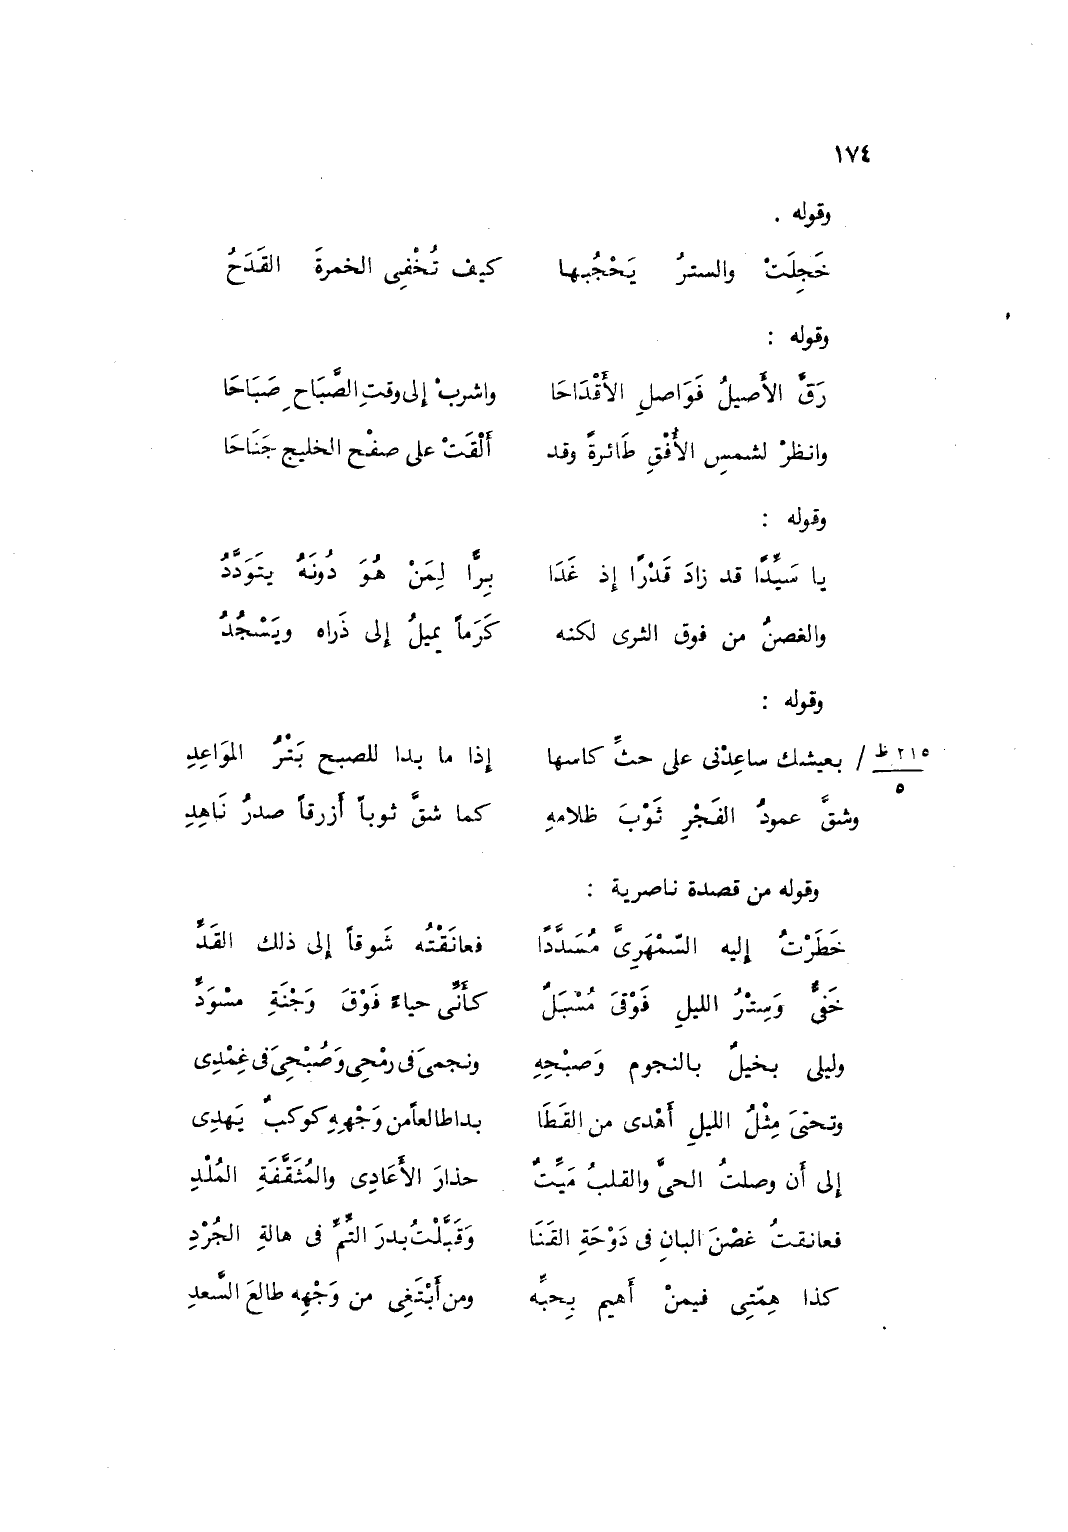 ١٧٤
وقوله .
خَجِلَتْ والسترُ يَحْجُبها كيف تُخْفِى الخمرةَ القَدَحُ
وقوله :
رَقَّ الأَصيلُ فَوَاصلِ الأَقْدَاحَا واشربْ إلى وقتِ الصَّبَاحِ صَبَاحَا
وانظرْ لشمسِ الأُفْقِ طَائرةً وقد أَلْقَتْ على صفْح الخليج جَنَاحَا
وقوله :
يا سَيِّدًا قد زادَ قَدْرًا إذ غَدَا بِرًّا لِمَنْ هُوَ دُونَهُ يتوَدَّدُ
والغصنُ من فوق الثرى لكنه كَرَماً يميلُ إلى ذَراه ويَسْجُدُ
وقوله :
٢١٥ ظ / بعيشك ساعِدْنى على حثِّ كاسها إذا ما بدا للصبح بَتْرُ المَوَاعِدِ
٥
وشقَّ عمودُ الفَجْرِ ثَوْبَ ظلامهِ كما شقَّ ثوباً أزرقاً صدرُ نَاهِدِ
وقوله من قصدة ناصرية :
خَطَرْتُ إليه السّمْهَرِىَّ مُسَدَّدًا فعانَقْتُه شَوقاً إلى ذلك القَدِّ
خَفىٌّ وَسِتْرُ الليلِ فَوْقىَ مُسْبَلٌ كأَنِّى حياءً فَوْقَ وَجْنَةِ مسْوَدِّ
وليلى بخيلٌ بالنجوم وَصبْحِهِ ونجمىَ فى رمْحِى وَصُبْحِىَ فى غِمْدِى
وتحتىَ مِثْلُ الليلِ أَهْدى من القَطَا بدا طالعاً من وَجْهِهِ كوكبٌ يَهدِى
إلى أَن وصلتُ الحىَّ والقلبُ مَيِّتٌ حذارَ الأَعَادِى والمُثَقَّفَةِ المُلْدِ
فعانقتُ غصْنَ البانِ فى دَوْحَةِ القَنَا وَقَبَّلْتُ بدرَ التِّمِّ فى هالةِ الجُرْدِ
كذا هِمّتِى فيمنْ أَهيم بِحبِّه ومن أَبْتَغِى من وَجْهِه طالعَ السَّعدِ